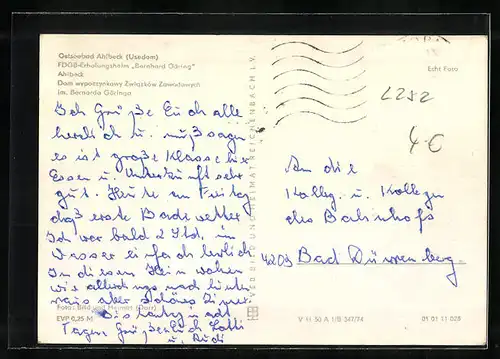 Ostseebad Ahlbeck (Usedom)
FDGB-Erholungsheim „Bernhard Göring"
Ahlbeck
Dom wypoczynkowy Związków Zawodowych
im. Bernarda Göringa
Ich Grüße Euch alle
herzlich u. muß sagen
es ist große Klasse hier
Essen u. Unterkunft sehr
gut. Heute am Freitag
daß erste Bade wetter
Ich war bald 2 Std. im
Wasser einfach herlich
In diesen Heim wohnen
wir allerdings nach hinten
raus aber schöns Zimer.
Bis
Tagen Grüße Euch Lotti
u. Rudi
Foto: Bild und Heimat
EVP 0,25 M
VERLAG BILD UND HEIMAT REICHENBACH I. V.
Echt Foto
L252
4€
An die
Kolleg. u. Kollegen
des Bahnhofs
4203 Bad Dürrenberg.
V 11 50 A 1/B 347/74
01 01 11 028